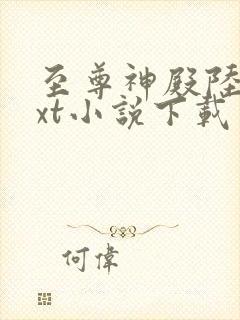 至尊神殿陸
xt小說下載
何偉